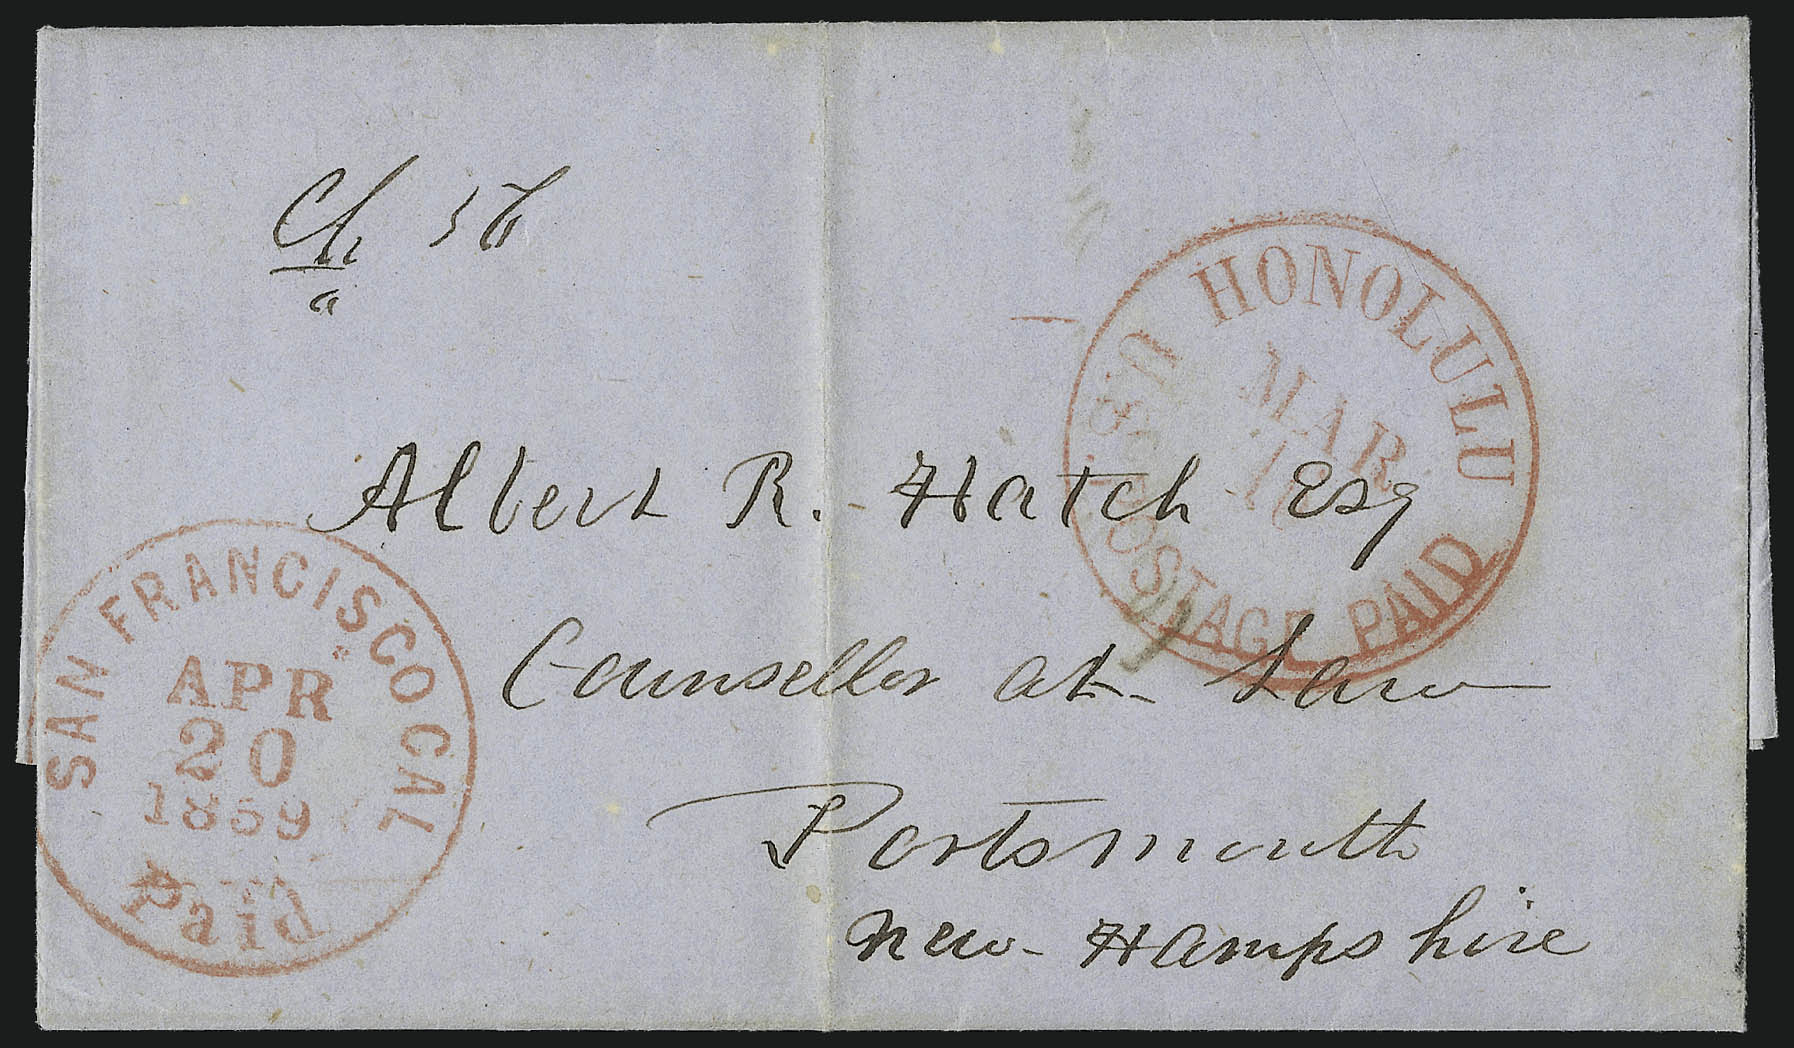 Ch
a
HONOLULU
U.S. POSTAGE PAID
MAR
Albert R. Hatch Esq
Counsellor at Law
Portsmouth
New-Hampshire
SAN FRANCISCO CAL
APR
20
1859
Paid